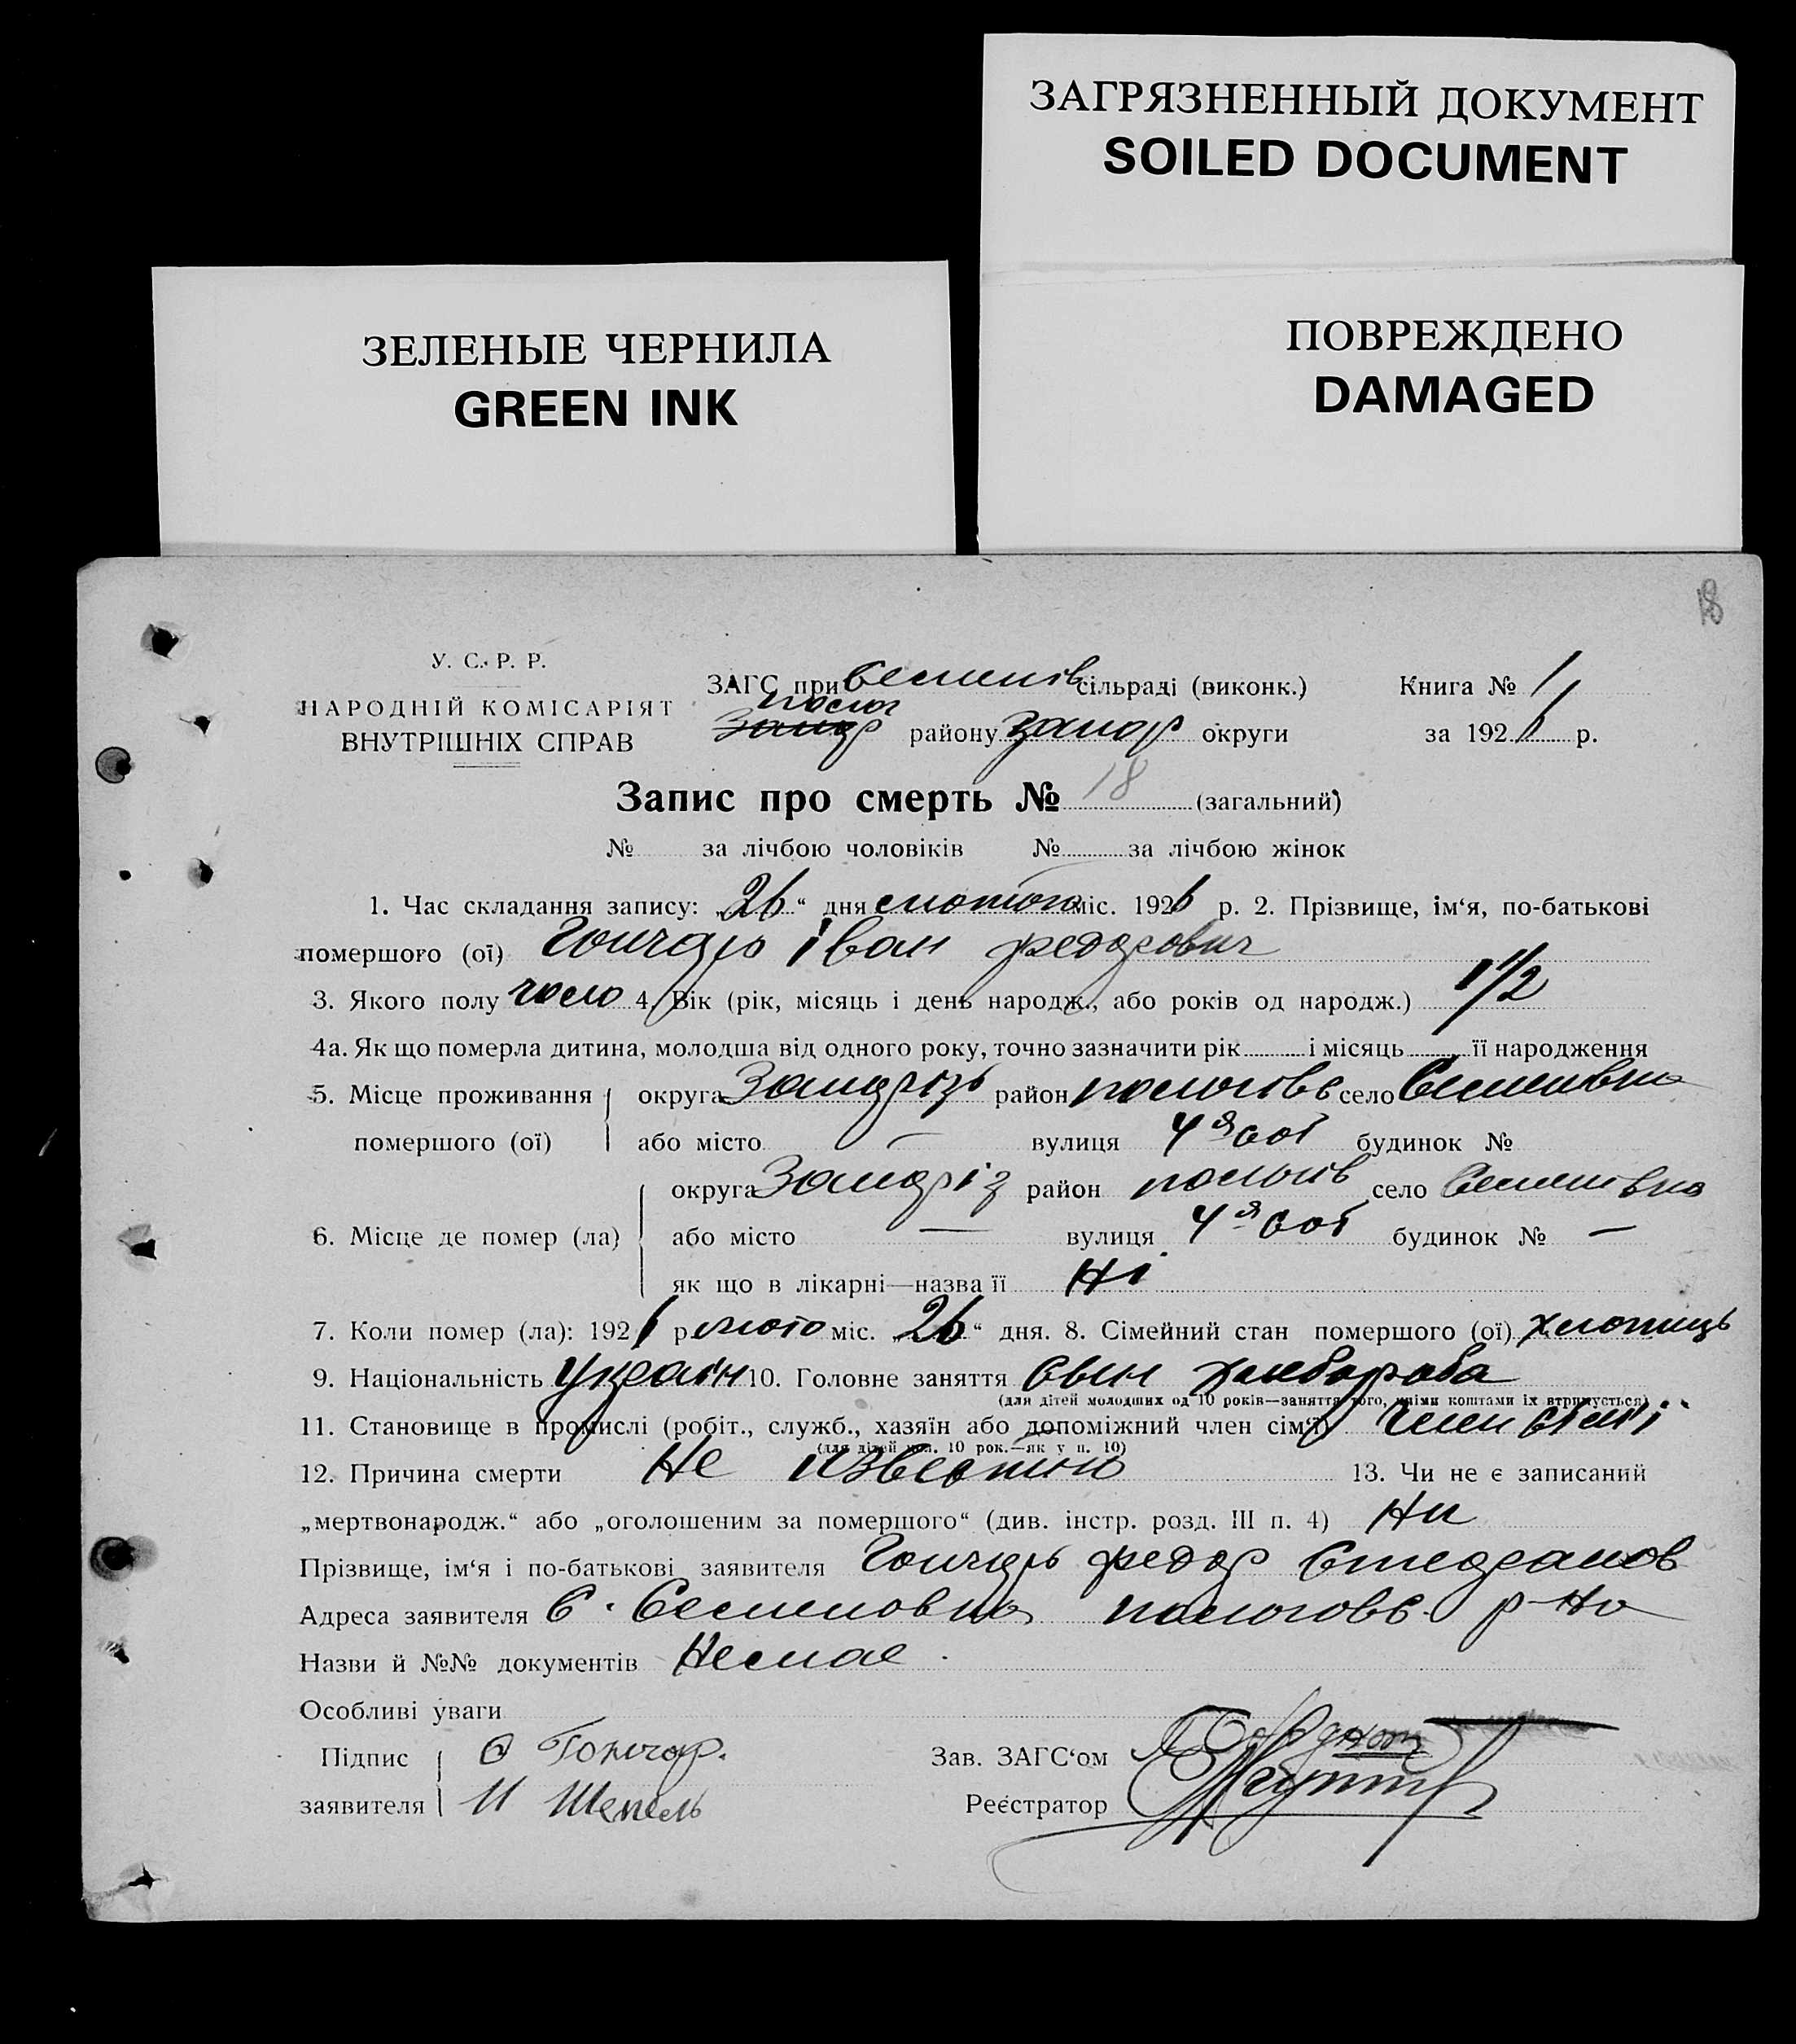 ЗАГРЯЗНЕННЫЙ ДОКУМЕНТ
SOILED DOCUMENT
ЗЕЛЕНЫЕ ЧЕРНИЛА
GREEN INK
ПОВРЕЖДЕНО
DAMAGED
18
У. С. Р. Р.
НАРОДНІЙ КОМІСАРІЯТ
ВНУТРІШНІХ СПРАВ
ЗАГС при Семенів сільраді (виконк.) Книга № 1
Полог
Запор району Запор округи за 1926 р.
Запис про смерть № 18 (загальний)
№ за лічбою чоловіків № за лічбою жінок
1. Час складання запису: „26“ дня лютого міс. 1926 р. 2. Прізвище, ім‘я, по-батькові
помершого (ої) Гончарь Іван Федорович
3. Якого полу чоло 4. Вік (рік, місяць і день народж., або років од народж.) 1 1/2
4а. Як що померла дитина, молодша від одного року, точно зазначити рік і місяць її народження
5. Місце проживання округа Запорізь район Пологівс село Семенівка
помершого (ої) або місто — вулиця 4я сот будинок №
округа Запоріз район Пологів село Семенівка
6. Місце де помер (ла) або місто — вулиця 4я сот будинок № —
як що в лікарні—назва її Ні
7. Коли помер (ла): 1926 р лютого міс. „26“ дня. 8. Сімейний стан помершого (ої) хлопиць
9. Національність Україн 10. Головне заняття Син хлібороба
(для дітей молодших од 10 років—заняття того, чиїми коштами їх втримується)
11. Становище в промислі (робіт., служб., хазяїн або допоміжний член сім‘ї) Член сімї
(для дітей мол. 10 рок.—як у п. 10)
12. Причина смерти Не известно 13. Чи не є записаний
„мертвонародж.“ або „оголошеним за помершого“ (див. інстр. розд. III п. 4) Ни
Прізвище, ім‘я і по-батькові заявителя Гончарь Федор Стефанов
Адреса заявителя С. Семеновка Пологовс. р-на
Назви й №№ документів Немає
Особливі уваги
Підпис Гончар. Зав. ЗАГС‘ом
заявителя И Шепель Реєстратор